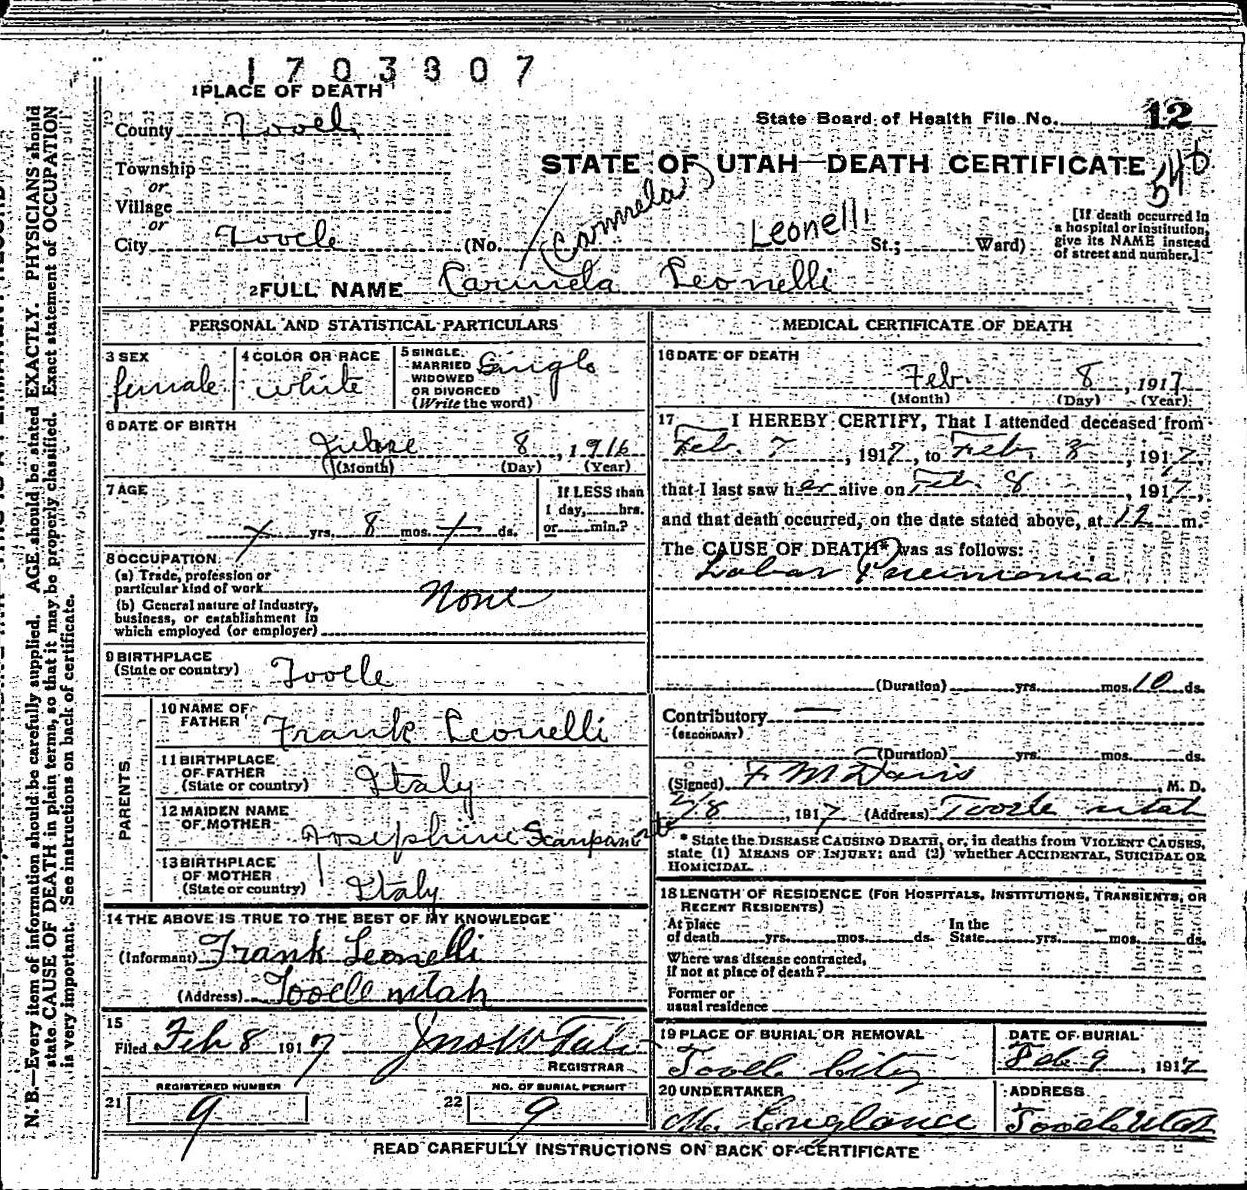 1703807
1 PLACE OF DEATH
County Tooele
State Board of Health File No. 12
Township
or
Village
or
STATE OF UTAH—DEATH CERTIFICATE
546
City Tooele (No. St.; Ward)
(Carmela Leonelli
[If death occurred in
a hospital or institution,
give its NAME instead
of street and number.]
2 FULL NAME Carmela Leonelli
PERSONAL AND STATISTICAL PARTICULARS
3 SEX
female
4 COLOR OR RACE
white
5 SINGLE,
MARRIED
WIDOWED
OR DIVORCED
(Write the word)
Single
6 DATE OF BIRTH
June 8, 1916
(Month) (Day) (Year)
7 AGE
yrs. 8 mos. ds.
If LESS than
1 day, hrs.
or min.?
8 OCCUPATION
(a) Trade, profession or
particular kind of work
None
(b) General nature of Industry,
business, or establishment in
which employed (or employer)
9 BIRTHPLACE
(State or country) Tooele
PARENTS
10 NAME OF
FATHER Frank Leonelli
11 BIRTHPLACE
OF FATHER
(State or country) Italy
12 MAIDEN NAME
OF MOTHER Josephine
13 BIRTHPLACE
OF MOTHER
(State or country) Italy
14 THE ABOVE IS TRUE TO THE BEST OF MY KNOWLEDGE
(Informant) Frank Leonelli
(Address) Tooele utah
15
Filed Feb 8 1917 Jno W
REGISTRAR
REGISTERED NUMBER
21 9
NO. OF BURIAL PERMIT
22 9
MEDICAL CERTIFICATE OF DEATH
16 DATE OF DEATH
Feb. 8, 1917
(Month) (Day) (Year)
17 I HEREBY CERTIFY, That I attended deceased from
Feb. 7, 1917, to Feb. 8, 1917,
that I last saw her alive on Feb 8, 1917,
and that death occurred, on the date stated above, at 12 m.
The CAUSE OF DEATH* was as follows:
Lobar Pneumonia
(Duration) yrs. mos. 10 ds.
Contributory —
(SECONDARY)
(Duration) yrs. mos. ds.
(Signed) F. M Davis, M. D.
2/8, 1917 (Address) Tooele utah
* State the DISEASE CAUSING DEATH, or, in deaths from VIOLENT CAUSES,
state (1) MEANS OF INJURY; and (2) whether ACCIDENTAL, SUICIDAL OR
HOMICIDAL.
18 LENGTH OF RESIDENCE (FOR HOSPITALS, INSTITUTIONS, TRANSIENTS, OR
RECENT RESIDENTS)
At place
of death yrs. mos. ds.
In the
State yrs. mos. ds.
Where was disease contracted,
if not at place of death?
Former or
usual residence
19 PLACE OF BURIAL OR REMOVAL
Tooele City
DATE OF BURIAL
Feb 9, 1917
20 UNDERTAKER
M. England
ADDRESS
Tooele Utah
READ CAREFULLY INSTRUCTIONS ON BACK OF CERTIFICATE
N. B.—Every item of information should be carefully supplied. AGE should be stated EXACTLY. PHYSICIANS should
state CAUSE OF DEATH in plain terms, so that it may be properly classified. Exact statement of OCCUPATION
is very important. See instructions on back of certificate.